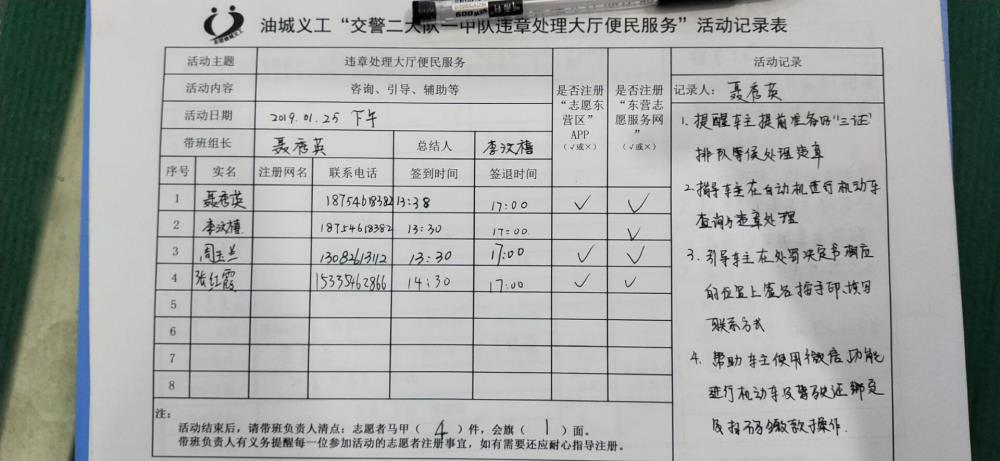 油城义工“交警二大队一中队违章处理大厅便民服务”活动记录表
活动主题 违章处理大厅便民服务
活动内容 咨询、引导、辅助等
活动日期 2019.01.25 下午
带班组长 聂秀英 总结人 李汶樯
是否注册“志愿东营区”APP（√或×）
是否注册“东营志愿服务网”（√或×）
序号 实名 注册网名 联系电话 签到时间 签退时间
1 聂秀英 18754618382 13:38 17:00 √ √
2 李汶樯 18754618382 13:30 17:00 √
3 周玉兰 13082613112 13:30 17:00 √ √
4 张红霞 15335462866 14:30 17:00 √ √
5
6
7
8
注：
活动结束后，请带班负责人清点：志愿者马甲（4）件，会旗（1）面。
带班负责人有义务提醒每一位参加活动的志愿者注册事宜，如有需要还应耐心指导注册。
活动记录
记录人：聂秀英
1. 提醒车主提前准备好“三证”
排队等候处理违章
2. 指导车主在自动机进行机动车
查询与违章处理
3. 引导车主在处罚决定书相应
的位置上签名按手印、填写
联系方式
4. 帮助车主使用微信功能
进行机动车及驾驶证绑定
及扫码缴款操作.